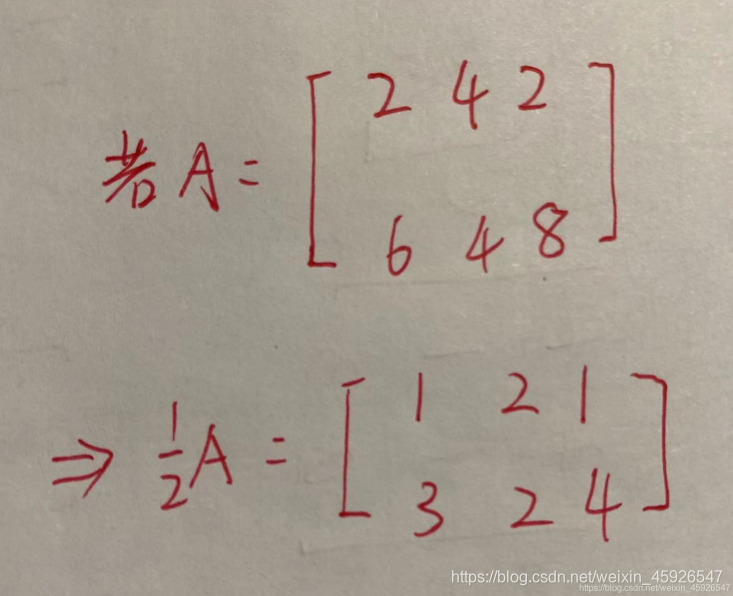 若 A = [ 2 4 2
6 4 8 ]
⇒ 1/2 A = [ 1 2 1
3 2 4 ]
https://blog.csdn.net/weixin_45926547
https://blog.csdn.net/weixin_45926547